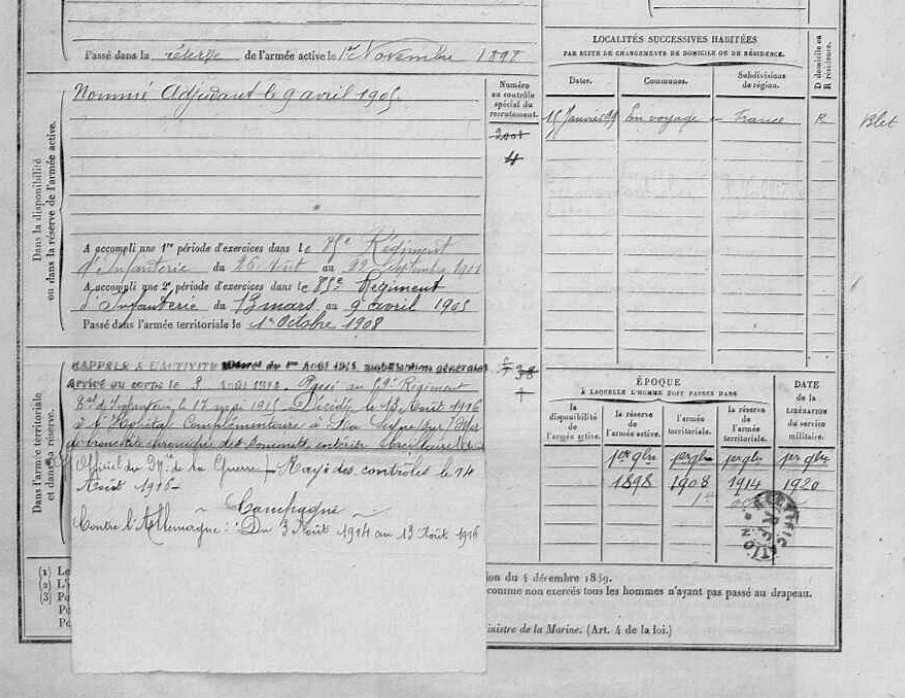 Passé dans la réserve de l'armée active le 1er Novembre 1898
Dans la disponibilité
ou dans la réserve de l'armée active.
Nommé Adjudant le 9 avril 1905.
Numéro
au contrôle
spécial du
recrutement.
4
A accompli une 1re période d'exercices dans le 85e Régiment
d'Infanterie du 26 Août au 22 Septembre 1901
A accompli une 2e période d'exercices dans le 85e Régiment
d'Infanterie du 13 mars au 9 avril 1905
Passé dans l'armée territoriale le 1er Octobre 1908
Dans l'armée territoriale
et dans sa réserve.
RAPPELÉ A L'ACTIVITÉ Décret du 1er Août 1914 mobilisation générale
Arrivé au corps le 3 Août 1914. Passé au Régiment
d'Infanterie le 17 mai 1915. Décédé le 13 Août 1916
à l'Hôpital Complémentaire
de bronchite chronique des sommets
Officiel du Mre de la Guerre) Rayé des contrôles le 14
Août 1916
Campagne
Contre l'Allemagne : Du 3 Août 1914 au 13 Août 1916
LOCALITÉS SUCCESSIVES HABITÉES
PAR SUITE DE CHANGEMENTS DE DOMICILE OU DE RÉSIDENCE.
Dates. Communes. Subdivisions de région. D domicile ou R résidence.
15 Janvier 99 En voyage en France R Blet
ÉPOQUE
À LAQUELLE L'HOMME DOIT PASSER DANS
DATE
de la
LIBÉRATION
du service
militaire.
la disponibilité de l'armée active.
la réserve de l'armée active.
l'armée territoriale.
la réserve de l'armée territoriale.
1898 1908 1914 1920
(1) Le
(2) L'
(3) Po
Po
Po
ion du 4 décembre 1889.
comme non exercés tous les hommes n'ayant pas passé au drapeau.
inistre de la Marine. (Art. 4 de la loi.)